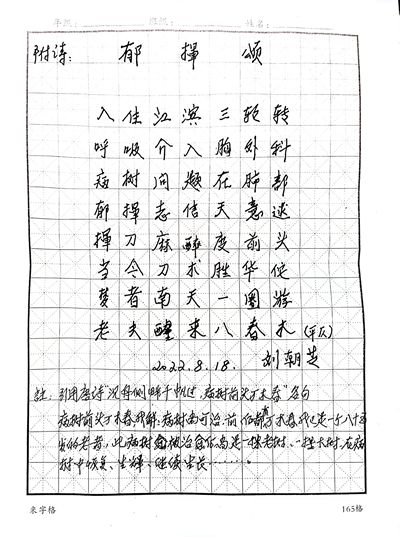 年级: 班级: 姓名:
附诗: 郁挥颂
入住江滨三轮转
呼吸介入胸外科
病树问题在肺部
郁挥志信天意述
挥刀麻醉度前头
当今刀术胜华佗
梦者南天一圈游
老夫醒来八春木 (平仄)
2022.8.18. 刘朝芝
注: 引用唐诗"沉舟侧畔千帆过, 病树前头万木春"名句
病树前头万木春 病树尚可治
岁的老者, 此病树 治 是一棵老树、一些大树、在病
树中恢复、生辉、继续生长……
米字格 165格